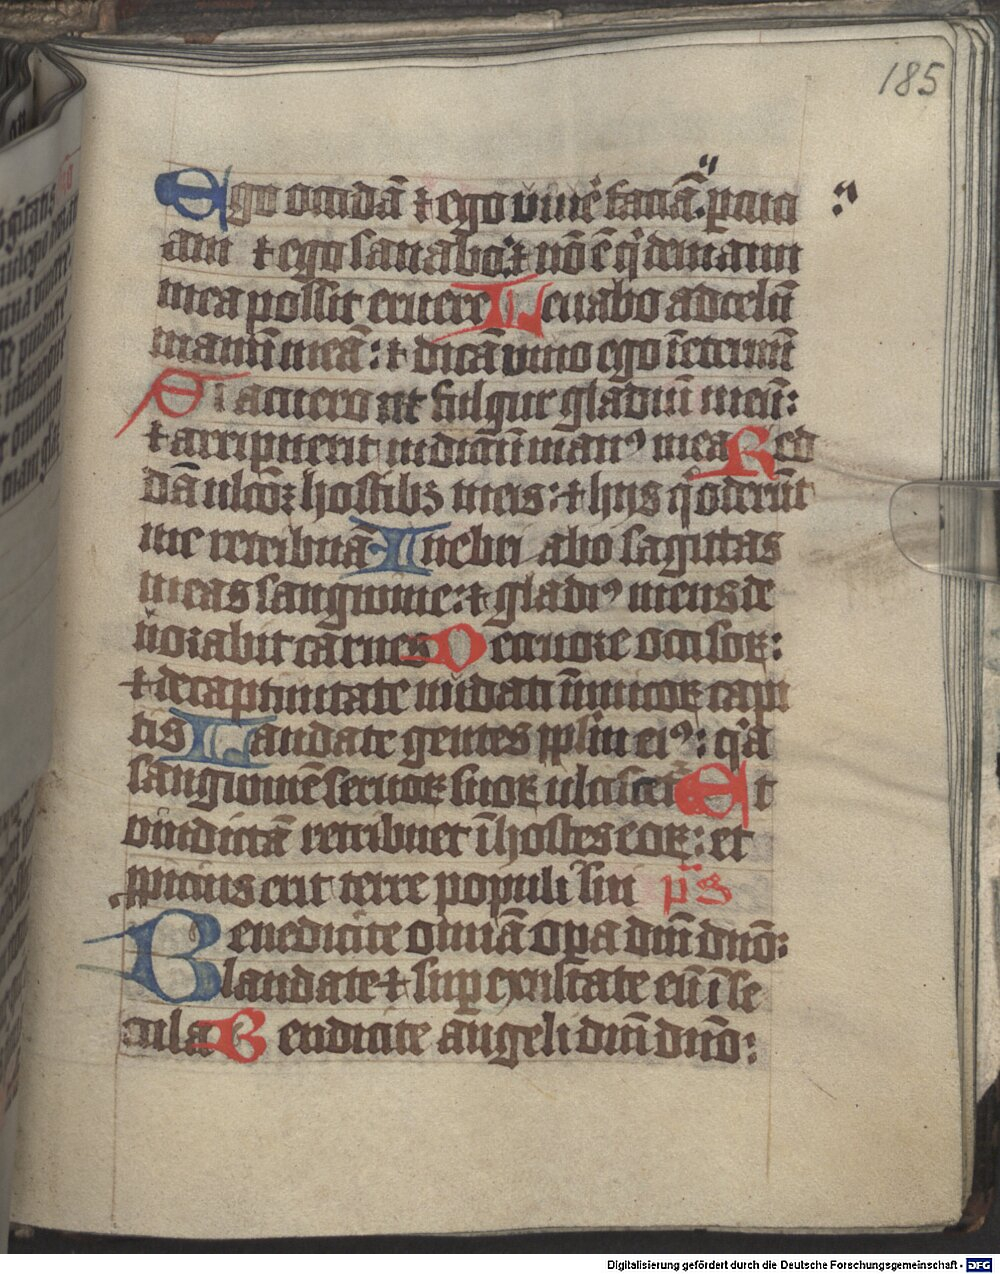 185
Ego occidā ⁊ ego viuē faciā. pcuci
am ⁊ ego sanabo: ⁊ nō ē q̄ de manu
mea possit eruere Leuabo ad celū
manū meā: ⁊ dicā viuo ego ī eternū
Si acuero ut fulgur gladiū meū:
⁊ arripuerit iudiciū manꝰ mea Red
dā ulcōꝫ hostibꝫ meis: ⁊ hijs q̄ oderūt
me retribuā Inebri abo sagittas
meas sanguine: ⁊ gladiꝰ meus de
uorabit carnes De cruore occisoꝝ:
⁊ de captiuitate nudati inimicoꝝ capi
tis Laudate gentes pplm eiꝰ: q̓a
sanguinē seruoꝝ suoꝝ ulciscet᷑ Et
vindictā retribuet ī hostes eoꝝ: et
ppicius erit terre populi sui p̄s
Benedicite omīa opa dn̄i dn̄o:
laudate ⁊ supexaltate eū ī se
cula Bendicite angeli dn̄i dn̄o:
Digitalisierung gefördert durch die Deutsche Forschungsgemeinschaft - DFG